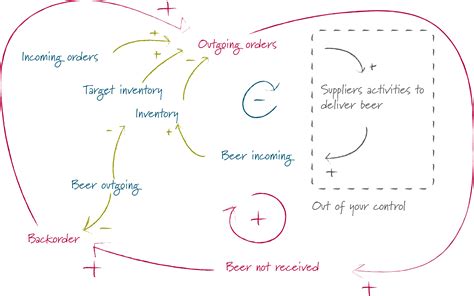 +
Outgoing orders
Incoming orders
+
+
-
+
Target inventory
Suppliers activities to
deliver beer
Inventory
-
+
-
Beer incoming
+
Beer outgoing
Out of your control
+
-
Backorder
+
Beer not received
+